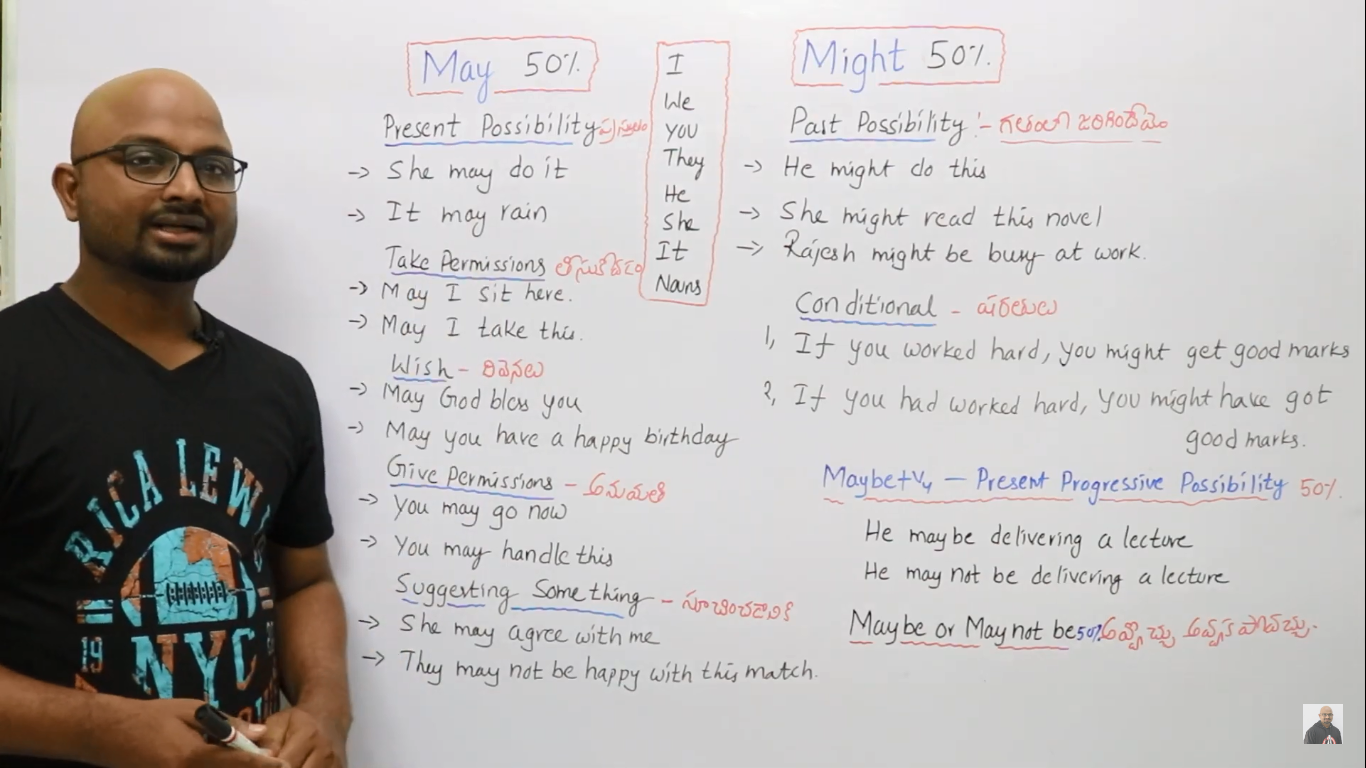 May 50%.
Present Possibility
-> She may do it
-> It may rain
Take Permissions తీసుకోవడం
-> May I sit here.
-> May I take this.
Wish - దీవెనలు
-> May God bless you
-> May you have a happy birthday
Give Permissions - అనుమతి
-> You may go now
-> You may handle this
Suggesting Something - సూచించడానికి
-> She may agree with me
-> They may not be happy with this match.
I
We
you
They
He
She
It
Nouns
Might 50%.
Past Possibility :-
-> He might do this
-> She might read this novel
-> Rajesh might be busy at work.
Conditional - షరతులు
1, If you worked hard, you might get good marks
2, If you had worked hard, you might have got
good marks.
Maybe+V4 — Present Progressive Possibility 50%.
He maybe delivering a lecture
He may not be delivering a lecture
Maybe or May not be 50%
RICA LEW
19
NYC